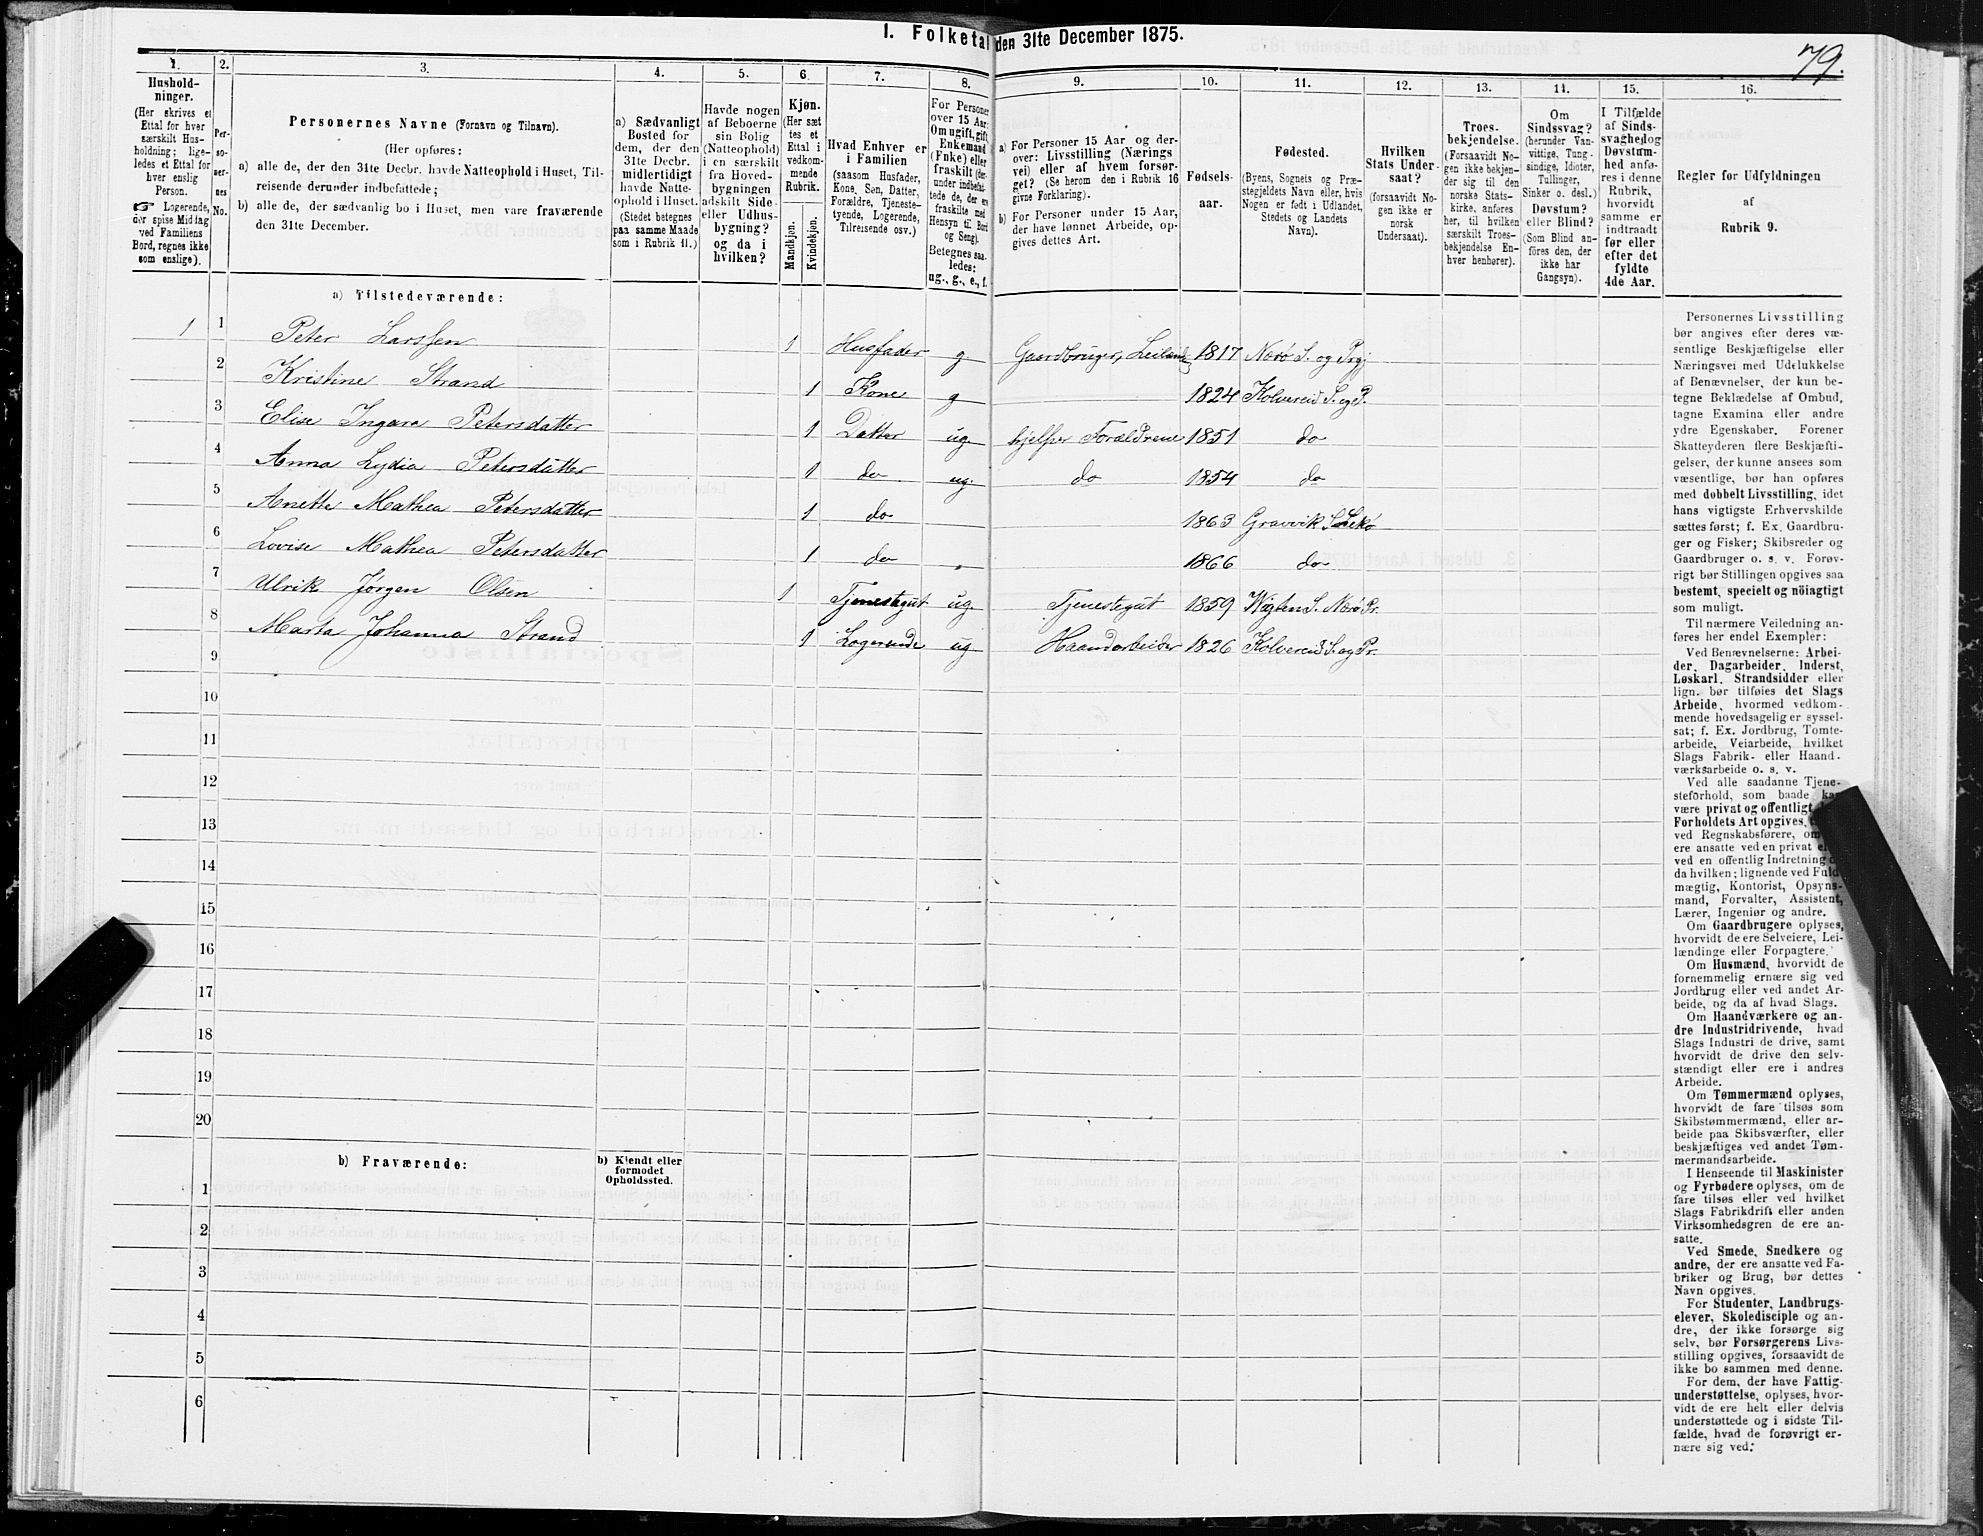 1. Folketal den 31te December 1875.
79.
1.
Hushold-
ninger.
(Her skrives et
Ettal for hver
særskilt Hus-
holdning; lige-
ledes et Ettal for
hver enslig
Person.
☞ Logerende,
der spise Middag
ved Familiens
Bord, regnes ikke
som enslige).
2.
Per-
so-
ner-
nes
No.
3.
Personernes Navne (Fornavn og Tilnavn).
(Her opføres:
a) alle de, der den 31te Decbr. havde Natteophold i Huset, Til-
reisende derunder indbefattede;
b) alle de, der sædvanlig bo i Huset, men vare fraværende
den 31te December.
4.
a) Sædvanligt
Bosted for
dem, der den
31te Decbr.
midlertidigt
havde Natte-
ophold i Huset.
(Stedet betegnes
paa samme Maade
som i Rubrik 11.)
5.
Havde nogen
af Beboerne
sin Bolig
(Natteophold)
i en særskilt
fra Hoved-
bygningen
adskilt Side-
eller Udhus-
bygning?
og da i
hvilken?
6.
Kjøn.
(Her sæt
tes et
Ettal i
vedkom-
mende
Rubrik.
Mandkjøn.
Kvindekjøn.
7.
Hvad Enhver er
i Familien
(saasom Husfader,
Kone, Søn, Datter,
Forældre, Tjeneste-
tyende, Logerende,
Tilreisende osv.)
8.
For Personer
over 15 Aar:
Om ugift, gift,
Enkemand
(Enke) eller
fraskilt (der-
under indbefat-
tede de, der ere
fraskilte med
Hensyn til Bord
og Seng).
Betegnes saa-
ledes:
ug., g., e., f.
9.
a) For Personer 15 Aar og der-
over: Livsstilling (Nærings
vei) eller af hvem forsør-
get? (Se herom den i Rubrik 16
givne Forklaring).
b) For Personer under 15 Aar,
der have lønnet Arbeide, op-
gives dettes Art.
10.
Fødsels-
aar.
11.
Fødested.
(Byens, Sognets og Præ-
stegjeldets Navn eller, hvis
Nogen er født i Udlandet,
Stedets og Landets
Navn).
12.
Hvilken
Stats Under-
saat?
(forsaavidt No-
gen ikke er
norsk
Undersaat).
13.
Troes-
bekjendelse.
(Forsaavidt No-
gen ikke bekjen-
der sig til den
norske Stats-
kirke, anføres
her, til hvilken
særskilt Troes-
bekjendelse En-
hver henhører).
14.
Om
Sindssvag?
(herunder Van-
vittige, Tung-
sindige, Idioter,
Tullinger,
Sinker o. desl.)
Døvstum?
eller Blind?
(Som Blind an-
føres den, der
ikke har
Gangsyn).
15.
I Tilfælde
af Sinds-
svaghed og
Døvstum-
hed anfø-
res i denne
Rubrik,
hvorvidt
samme er
indtraadt
før eller
efter det
fyldte
4de Aar.
16.
Regler for Udfyldningen
af
Rubrik 9.
a) Tilstedeværende:
1 1 Peter Larssen 1 Husfader g Gaardbruger, Leilænd 1817 Nærø S. og Prgj
2 Kristine Strand 1 Kone g 1824 Kolvereid S. og P.
3 Elise Ingara Petersdatter 1 Datter ug hjelper Forældrene 1851 do
4 Anna Lydia Petersdatter 1 do ug do 1854 do
5 Anette Mathea Petersdatter 1 do 1863 Gravvik S. Lekø
6 Lovise Mathea Petersdatter 1 do 1866 do
7 Ulrik Jørgen Olsen 1 Tjenestegut ug Tjenestegut 1859 Wigten S. Nærø Pr.
8 Marta Johanna Strand 1 Logerende ug Haandarbeider 1826 Kolvereid S. og Pr.
9
10
11
12
13
14
15
16
17
18
19
20
b) Fraværende:
b) Kjendt eller
formodet
Opholdssted.
1
2
3
4
5
6
Personernes Livsstilling
bør angives efter deres væ-
sentlige Beskjæftigelse eller
Næringsvei med Udelukkelse
af Benævnelser, der kun be-
tegne Beklædelse af Ombud,
tagne Examina eller andre
ydre Egenskaber. Forener
Skatteyderen flere Beskjæfti-
gelser, der kunne ansees som
væsentlige, bør han opføres
med dobbelt Livsstilling, idet
hans vigtigste Erhvervskilde
sættes først; f. Ex. Gaardbru-
ger og Fisker; Skibsreder og
Gaardbruger o. s. v. Forøv-
rigt bør Stillingen opgives saa
bestemt, specielt og nöiagtigt
som muligt.
Til nærmere Veiledning an-
føres her endel Exempler:
Ved Benævnelserne: Arbei-
der, Dagarbeider, Inderst,
Løskarl, Strandsidder eller
lign. bør tilføies det Slags
Arbeide, hvormed vedkom-
mende hovedsagelig er syssel-
sat; f. Ex. Jordbrug, Tomte-
arbeide, Veiarbeide, hvilket
Slags Fabrik- eller Haand-
værksarbeide o. s. v.
Ved alle saadanne Tjene-
steforhold, som baade kan
være privat og offentligt,
Forholdets Art opgives,
ved Regnskabsførere, om
ere ansatte ved en privat
ved en offentlig Indretning
da hvilken; lignende ved Fuld-
mægtig, Kontorist, Opsyns-
mand, Forvalter, Assistent,
Lærer, Ingeniør og andre.
Om Gaardbrugere oplyses,
hvorvidt de ere Selveiere, Lei-
lændinge eller Forpagtere.
Om Husmænd, hvorvidt de
fornemmelig ernære sig ved
Jordbrug eller ved andet Ar-
beide, og da af hvad Slags.
Om Haandværkere og an-
dre Industridrivende, hvad
Slags Industri de drive, samt
hvorvidt de drive den selv-
stændigt eller ere i andres
Arbeide.
Om Tømmermænd oplyses,
hvorvidt de fare tilsøs som
Skibstømmermænd, eller ar-
beide paa Skibsværfter, eller
beskjæftiges ved andet Tøm-
mermandsarbeide.
I Henseende til Maskinister
og Fyrbødere oplyses, om de
fare tilsøs eller ved hvilket
Slags Fabrikdrift eller anden
Virksomhedsgren de ere an-
satte.
Ved Smede, Snedkere og
andre, der ere ansatte ved Fa-
briker og Brug, bør dettes
Navn opgives.
For Studenter, Landbrugs-
elever, Skoledisciple og an-
dre, der ikke forsørge sig
selv, bør Forsørgerens Livs-
stilling opgives, forsaavidt de
ikke bo sammen med denne.
For dem, der have Fattig-
understøttelse, oplyses, hvor-
vidt de ere helt eller delvis
understøttede og i sidste Til-
fælde, hvad de forøvrigt er-
nære sig ved.